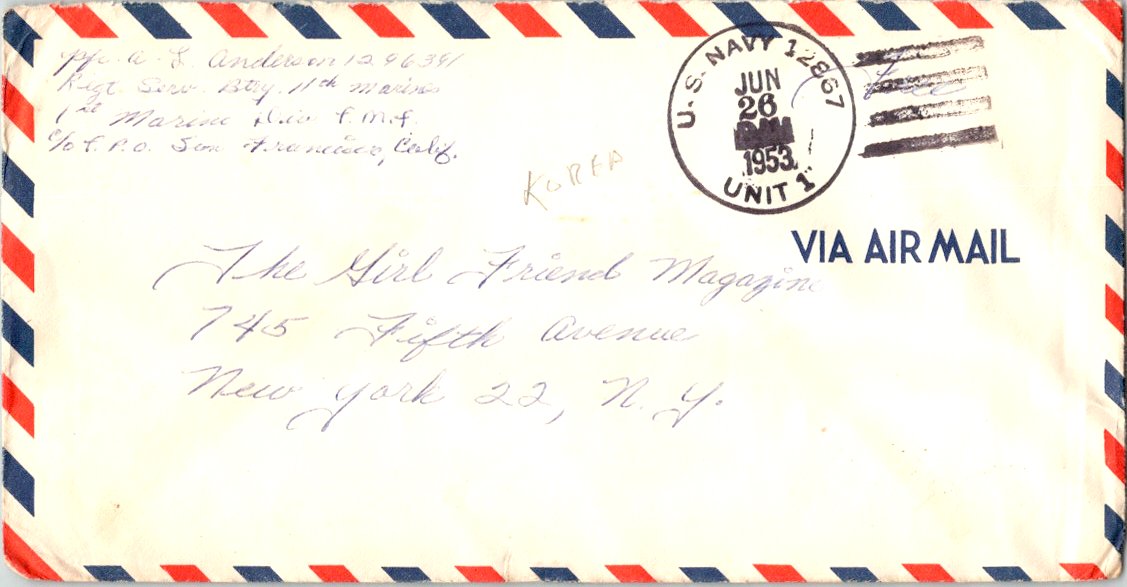 Pfc. A. L. Anderson 1296391
Regt. Serv. Btry. 11th Marines
1st Marine Div. F.M.F.
c/o F.P.O. San Francisco, Calif.
U.S. NAVY 12867
JUN
26
1953
UNIT 1
Free
KOREA
VIA AIR MAIL
The Girl Friend Magazine
745 Fifth Avenue
New York 22, N.Y.